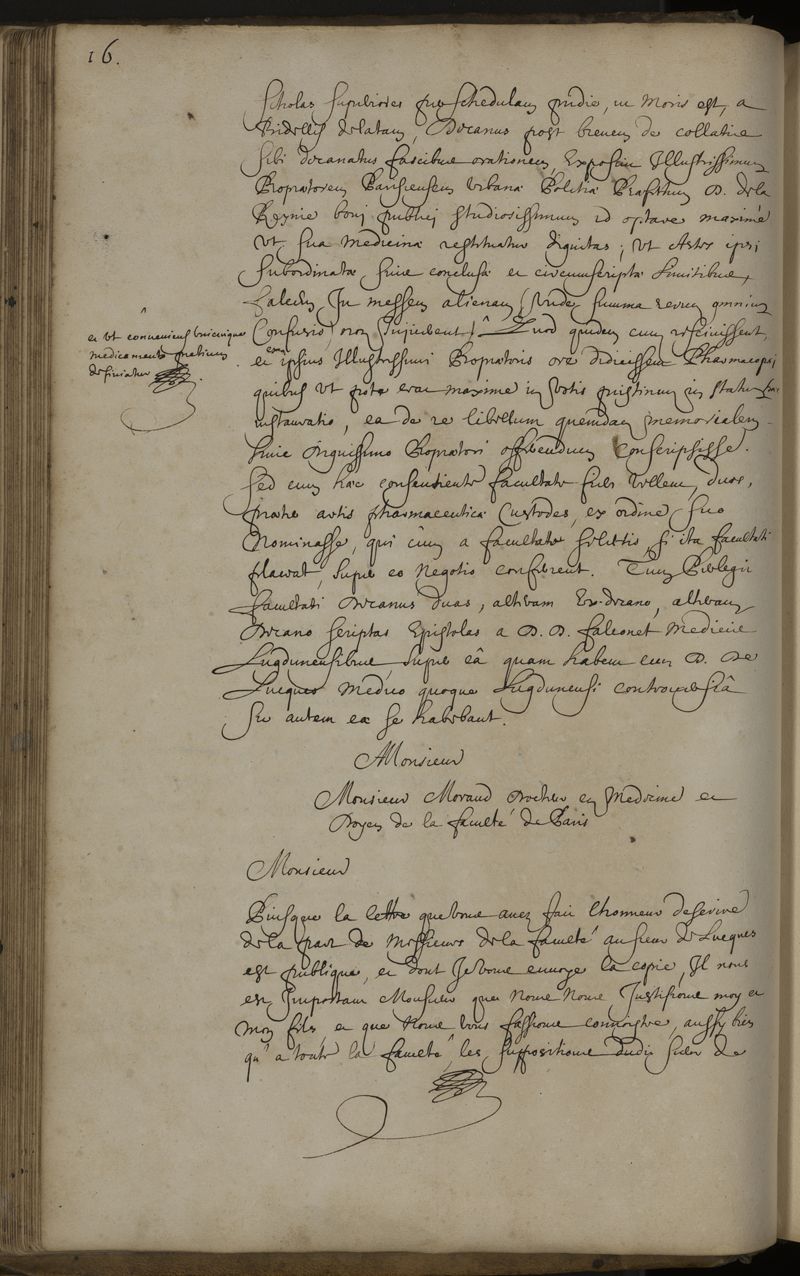 16.
Scholas superiores per schedulam pridie, ut moris est, a
Bidellis delatam, Decanus post brevem de collatis
sibi decanatus fascibus orationem, Exposuit Illustrissimum
Propraetorem Parisiensem Urbanae Politiae Praefectum D. de la
Reynie boni publici studiosissimum id optare maxime
ut sua medicinae restituatur dignitas; ut Artes ipsi
subordinatae suis conclusae et circumscriptae limitibus,
falcem in messem alienam (unde summa rerum omnium
Confusio) non injiciant ^ Quod quidem cum rescivissent,
et ex ipsius Illustrissimi Propraetoris ore didicissent Pharmacopaei
quibus ut pote erat maxime in votis pristinum in statum
instauratio, ea de re libellum quemdam memorialem
huic aequissimo Propraetori offerendum Conscripsisse.
sed cum hac consentiente facultate fieri vellent, duos,
artis pharmaceuticae Custodes, ex ordine suo
Nominasse, qui cum a facultate selectis, si ita facultati
placeat, super eo negotio conferrent. Tum Perlegit
facultati Decanus duas, alteram Ex-decano, alteram
Decano scriptas Epistolas a D. D. falconet Medicis
Lugdunensibus, super eâ quam habent cum D. De
Lucques Medico quoque Lugdunensi controversiâ
sic autem eae se habebant.
^
et ut conveniens unicuique
medicamento pretium
definiatur
Monsieur
Monsieur Morand Docteur en Medecine et
Doyen de la faculté de Paris
Monsieur
Puisque la lettre que vous avez fait l'honneur descrire
de la part de Messieurs de la faculté au sieur de Lucques
est publique, et dont Je vous envoye la copie, Il nous
est Important Monsieur que Nous Nous Justifions moy et
mon fils, et que Nous vous fassions connoistre, aussy bien
qu'a toute la faculté, les suppositions dudit sieur de